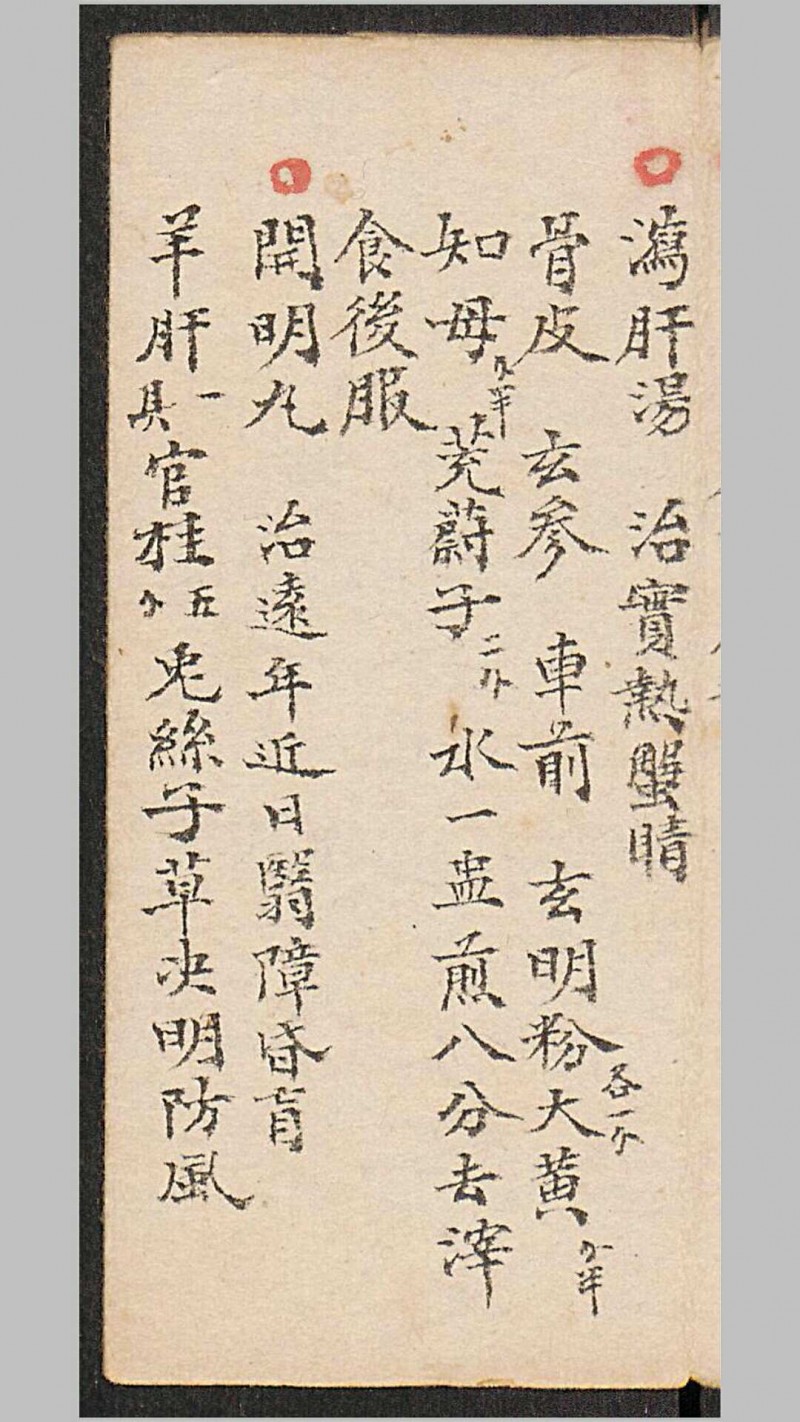 瀉肝湯 治實熱蟹睛
骨皮 玄參 車前 玄明粉各一分大黃分半
知母分半 茺蔚子二分 水一盅煎八分去滓
食後服
開明丸 治遠年近日翳障昏盲
羊肝一具官桂五分兎絲子草决明防風